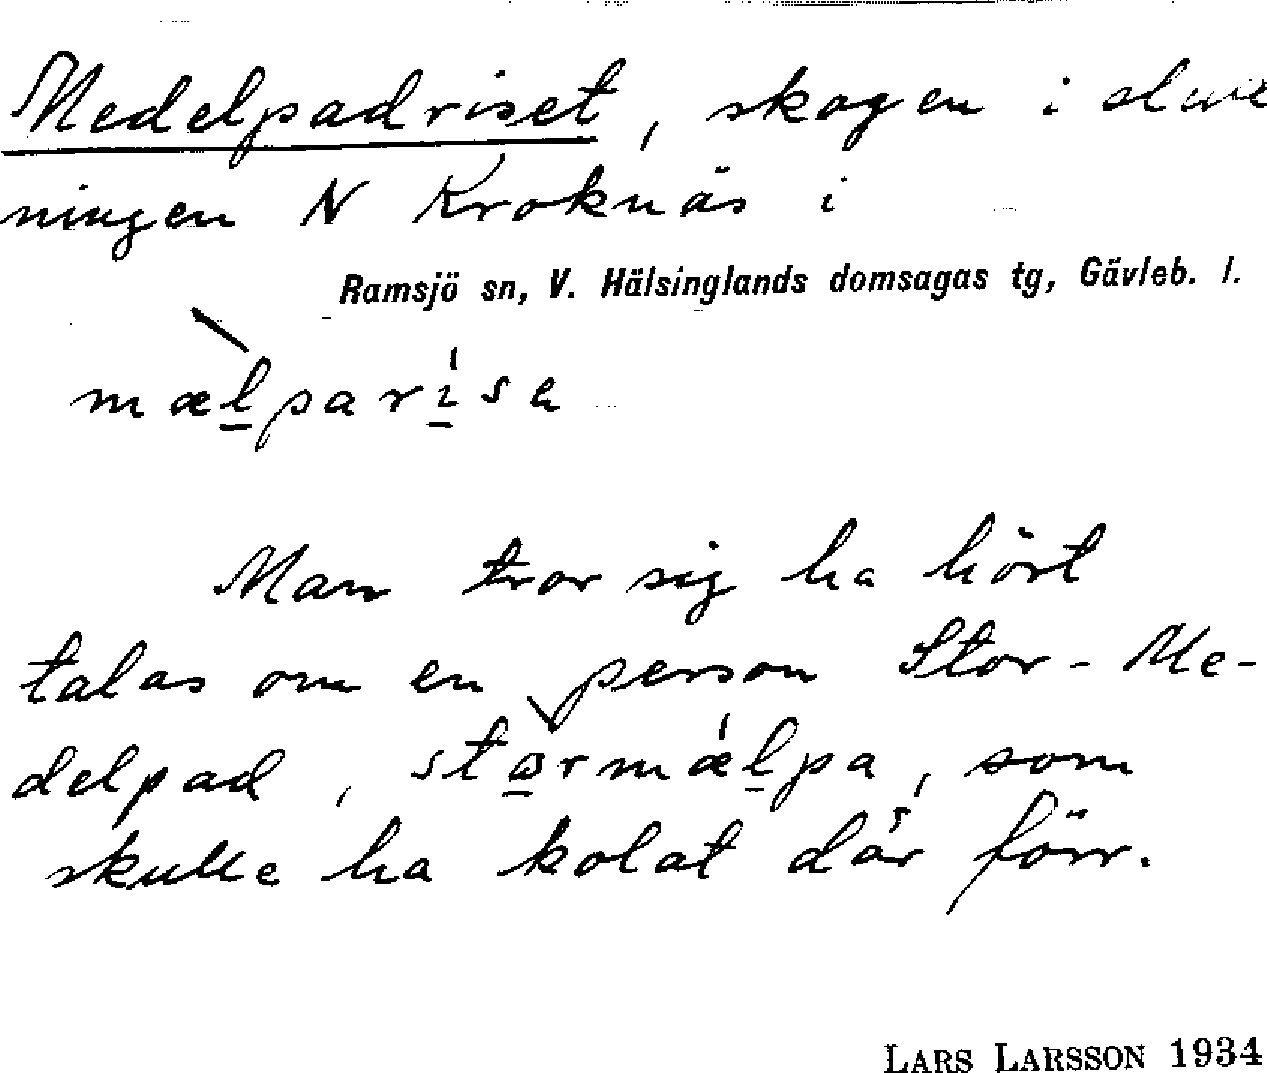 Medelpadriset, skogen i slutt
ningen N Kroknäs i
Ramsjö sn, V. Hälsinglands domsagas tg, Gävleb. l.
mælparise
Man tror sig ha hört
talas om en person Stor-Me-
delpad, stormælpa, som
skulle ha kolat där förr.
LARS LARSSON 1934